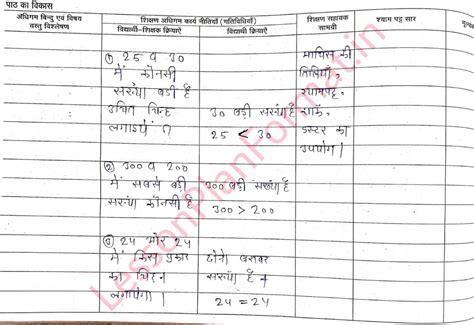 पाठ का विकास
अधिगम बिन्दु एवं विषय वस्तु विश्लेषण
शिक्षण अधिगम कार्य नीतियाँ (गतिविधियाँ)
विद्यार्थी-शिक्षक क्रियाएँ
विद्यार्थी क्रियाएँ
शिक्षण सहायक सामग्री
श्याम पट्ट सार
① 25 व 30
में कौनसी
संख्या बड़ी है
उचित चिन्ह
लगाइये ?
30 बड़ी संख्या है
25 < 30
माचिस की
तिलियाँ,
श्यामपट्ट,
चाक,
डस्टर का
उपयोग।
② 300 व 200
में सबसे बड़ी
संख्या कौनसी है
300 बड़ी संख्या है
300 > 200
③ 24 और 24
में किस प्रकार
का चिह्न
लगाएंगा।
दोनो बराबर
संख्या है
24 = 24
LessonPlanFormat.in